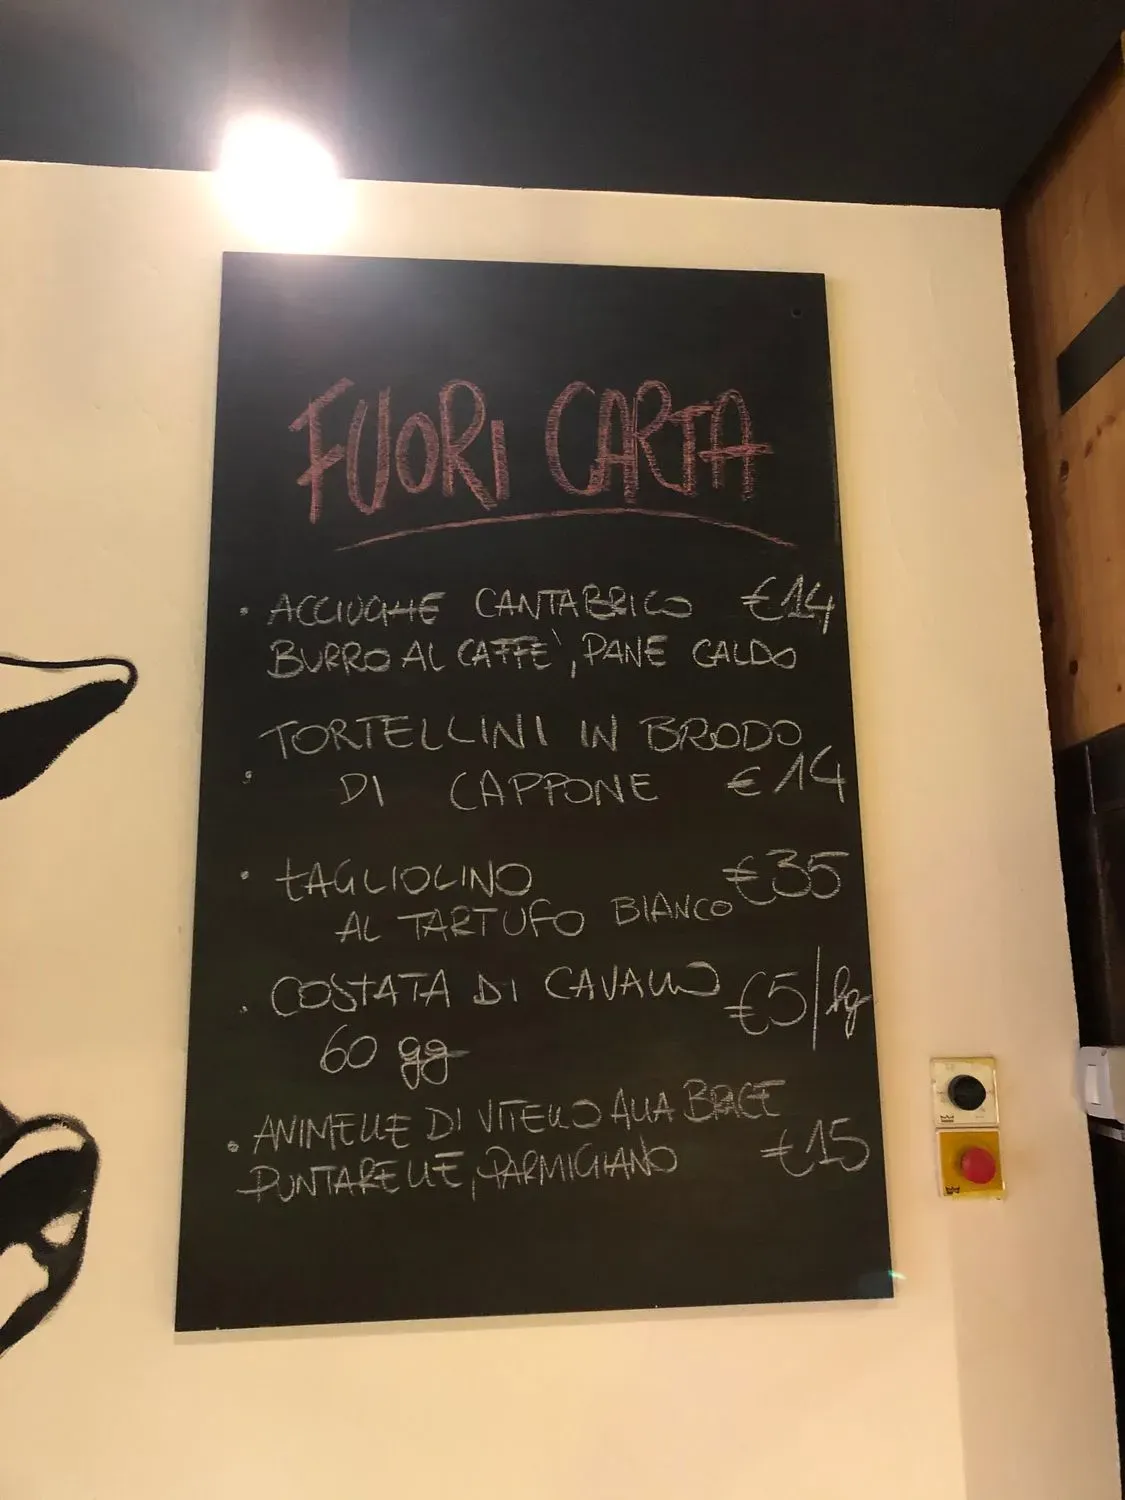 FUORI CARTA
• ACCIUGHE CANTABRICO €14
BURRO AL CAFFÈ, PANE CALDO
TORTELLINI IN BRODO
• DI CAPPONE €14
• TAGLIOLINO €35
AL TARTUFO BIANCO
• COSTATA DI CAVALLO €5/hg
60 gg
• ANIMELLE DI VITELLO ALLA BRACE
PUNTARELLE, PARMIGIANO €15